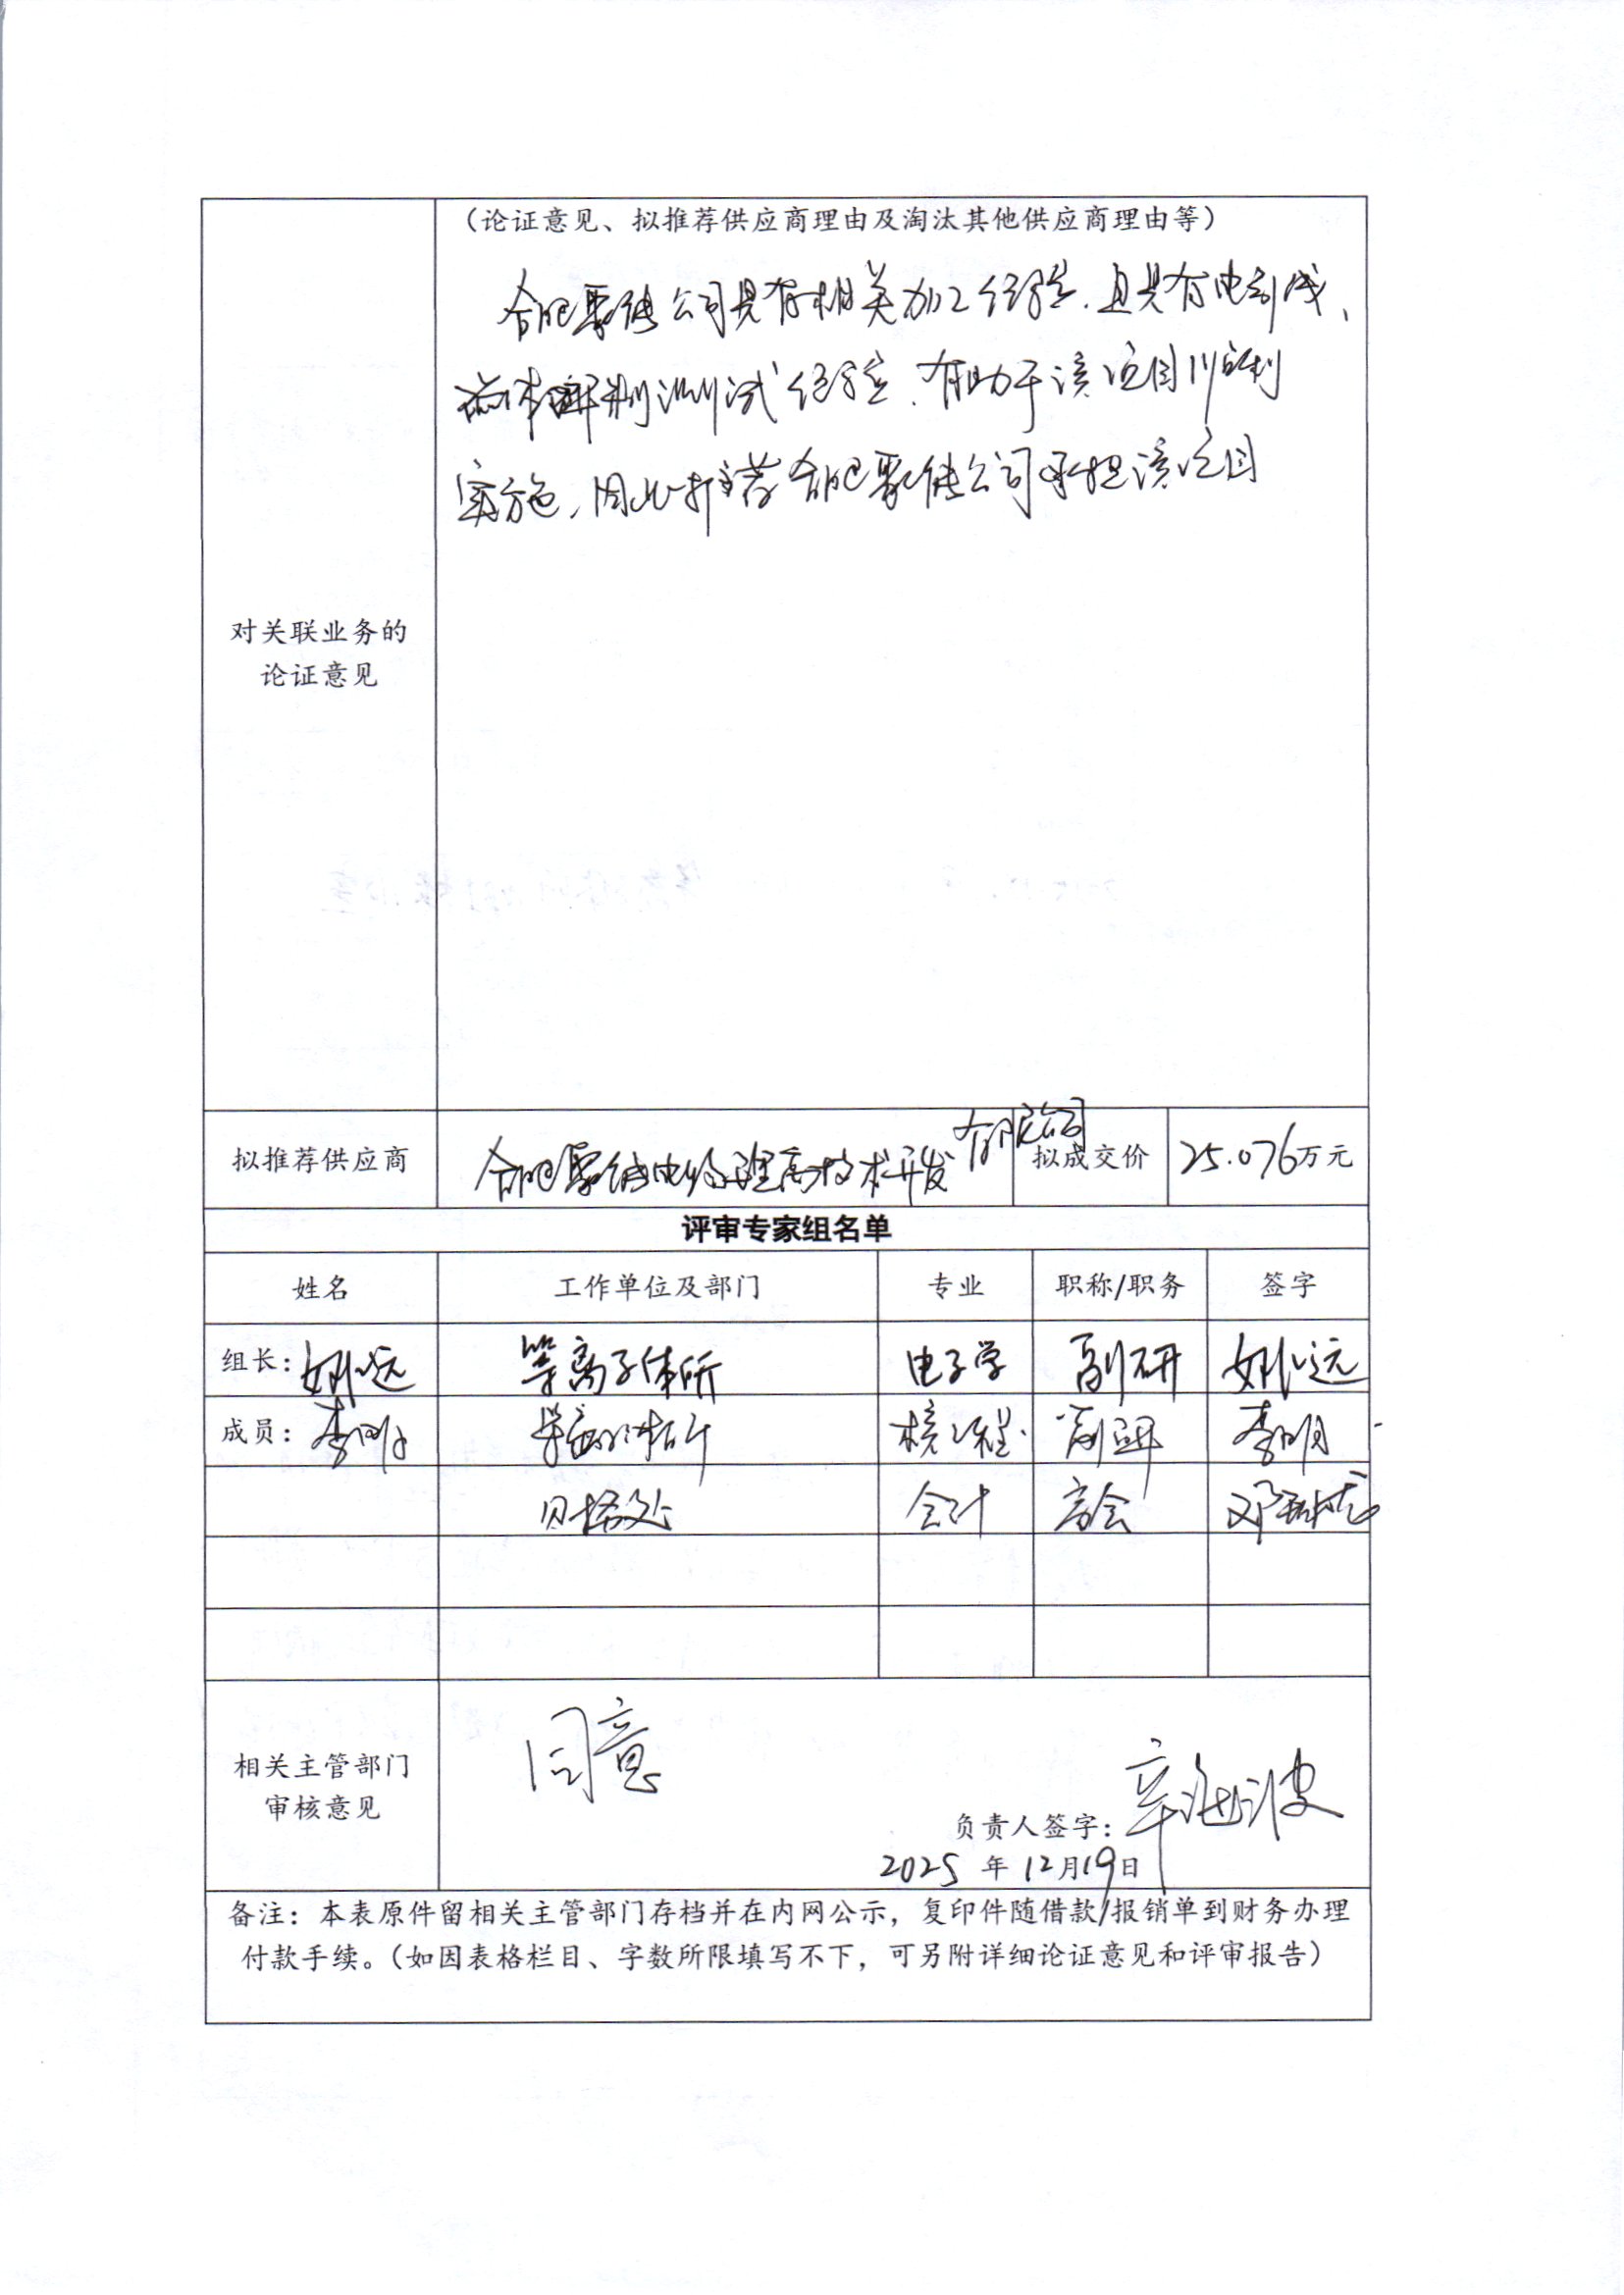 （论证意见、拟推荐供应商理由及淘汰其他供应商理由等）
合肥聚能公司具有相关加工经验，且具有电引线、
测试经验，有助于该项目顺利
实施，因此推荐合肥聚能公司承担该项目
对关联业务的
论证意见
拟推荐供应商 合肥聚能电物理高技术开发有限公司 拟成交价 25.076万元
评审专家组名单
姓名 工作单位及部门 专业 职称/职务 签字
组长： 等离子体所 电子学 副研
成员：李明 等离子体所 核工程 副研 李明
财务处 会计 高会
相关主管部门
审核意见
同意
负责人签字：
2025 年 12月19日
备注：本表原件留相关主管部门存档并在内网公示，复印件随借款/报销单到财务办理
付款手续。（如因表格栏目、字数所限填写不下，可另附详细论证意见和评审报告）